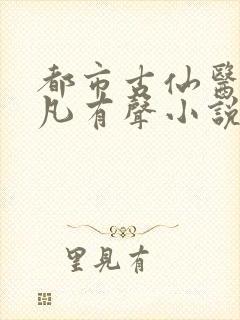 都市古仙醫
凡有聲小說
里見有